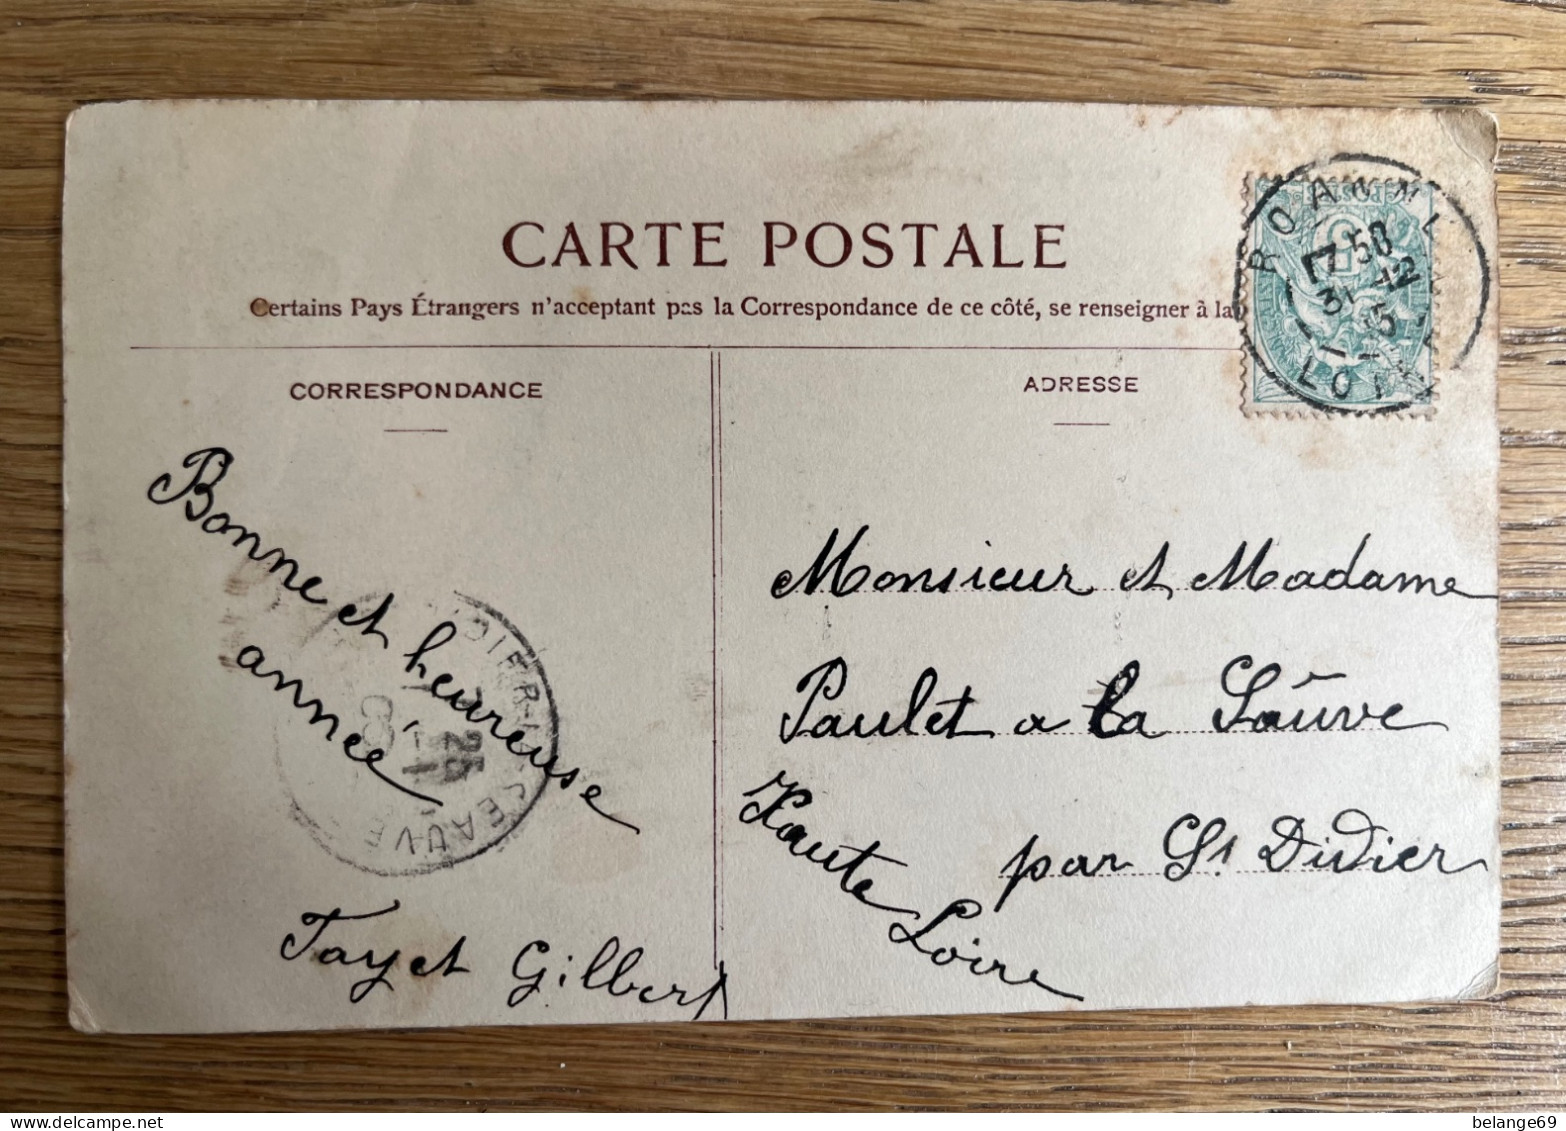 CARTE POSTALE
Certains Pays Étrangers n'acceptant pas la Correspondance de ce côté, se renseigner à la
CORRESPONDANCE
ADRESSE
ROANNE
17 50
31 - 12
05
LOIRE
Bonne et heureuse
année
DIER-
SEAUVE
25
1 - 1
06
Tayet Gilbert
Monsieur et Madame
Paulet a la Sâuve
par St Didier
Haute
Loire
belange69